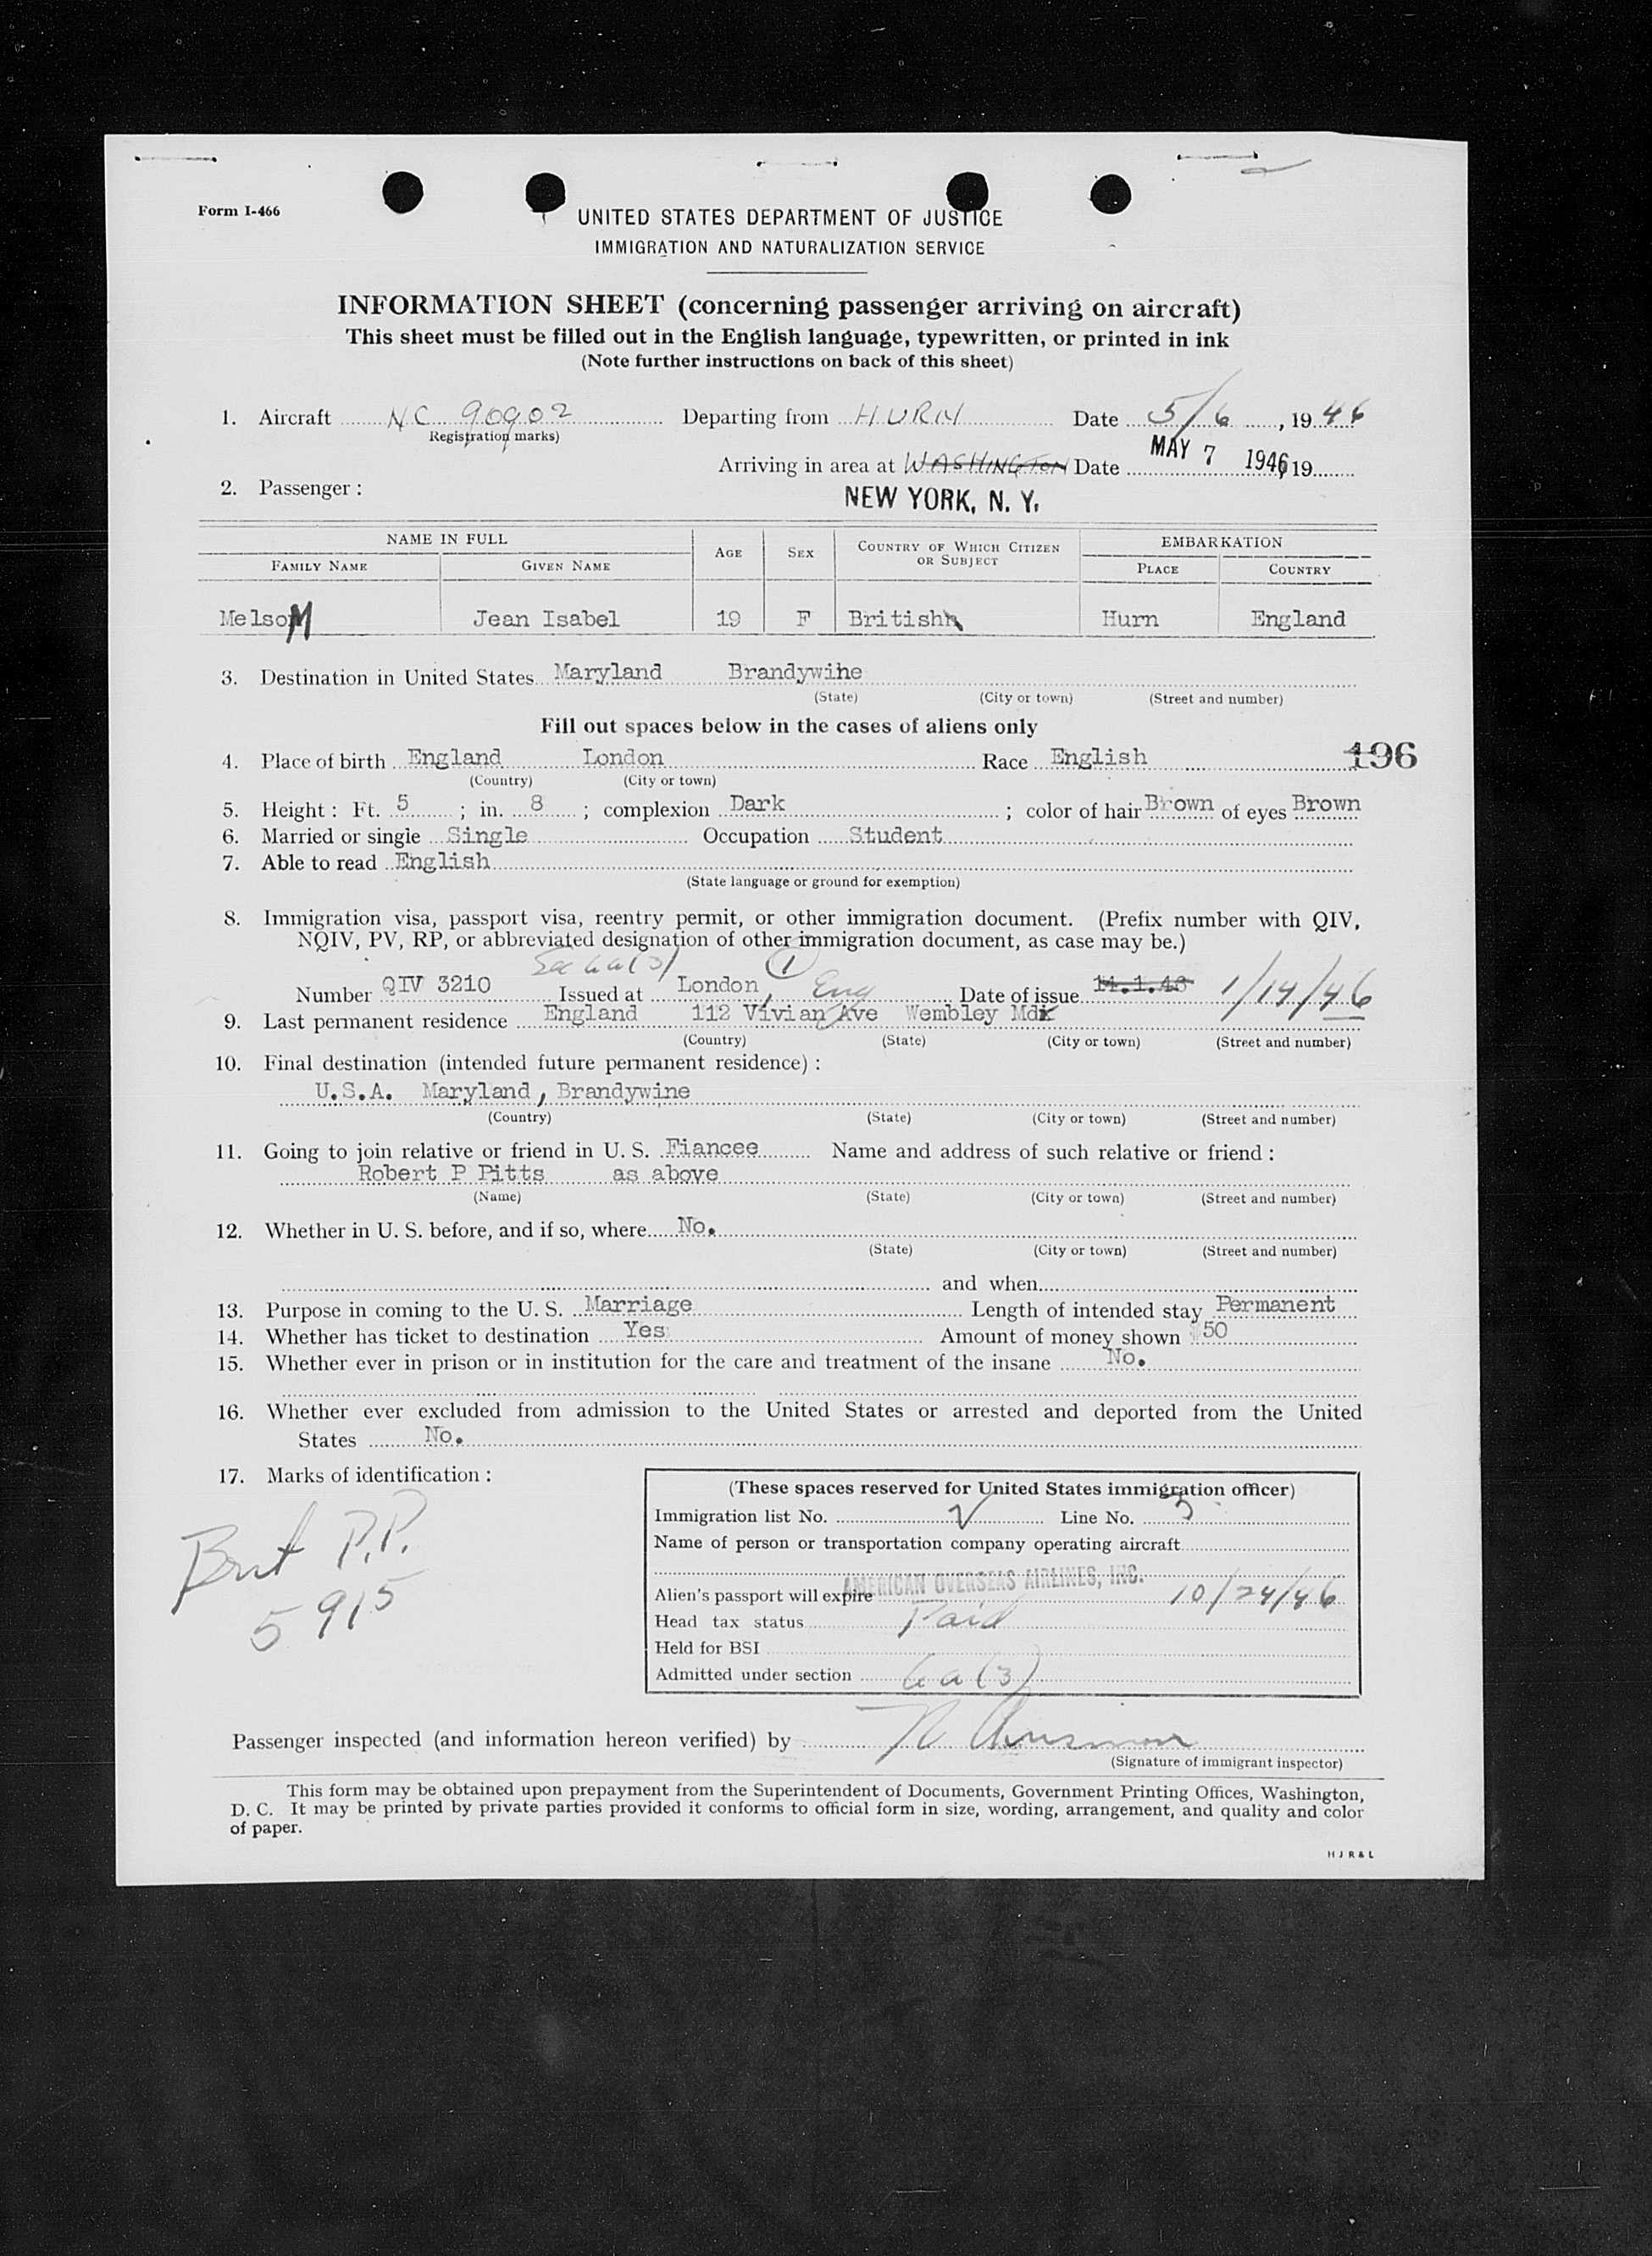 Form I-466
UNITED STATES DEPARTMENT OF JUSTICE
IMMIGRATION AND NATURALIZATION SERVICE
INFORMATION SHEET (concerning passenger arriving on aircraft)
This sheet must be filled out in the English language, typewritten, or printed in ink
(Note further instructions on back of this sheet)
1. Aircraft NC 90902 Departing from HURN Date 5/6, 1946
(Registration marks)
Arriving in area at WASHINGTON Date MAY 7 1946, 19
NEW YORK, N. Y.
2. Passenger:
NAME IN FULL AGE SEX COUNTRY OF WHICH CITIZEN OR SUBJECT EMBARKATION
FAMILY NAME GIVEN NAME PLACE COUNTRY
MelsoM Jean Isabel 19 F British Hurn England
3. Destination in United States Maryland Brandywihe
(State) (City or town) (Street and number)
Fill out spaces below in the cases of aliens only
4. Place of birth England London Race English 196
(Country) (City or town)
5. Height: Ft. 5; in. 8; complexion Dark; color of hair Brown of eyes Brown
6. Married or single Single Occupation Student
7. Able to read English
(State language or ground for exemption)
8. Immigration visa, passport visa, reentry permit, or other immigration document. (Prefix number with QIV,
NQIV, PV, RP, or abbreviated designation of other immigration document, as case may be.)
Sec 6a(3) 1
Number QIV 3210 Issued at London, Eng Date of issue 14.1.46 1/14/46
9. Last permanent residence England 112 Vivian Ave Wembley Mdx
(Country) (State) (City or town) (Street and number)
10. Final destination (intended future permanent residence):
U.S.A. Maryland, Brandywine
(Country) (State) (City or town) (Street and number)
11. Going to join relative or friend in U. S. Fiancee Name and address of such relative or friend:
Robert P Pitts as above
(Name) (State) (City or town) (Street and number)
12. Whether in U. S. before, and if so, where No.
(State) (City or town) (Street and number)
and when
13. Purpose in coming to the U. S. Marriage Length of intended stay Permanent
14. Whether has ticket to destination Yes Amount of money shown 50
15. Whether ever in prison or in institution for the care and treatment of the insane No.
16. Whether ever excluded from admission to the United States or arrested and deported from the United
States No.
17. Marks of identification:
Brit P.P.
5915
(These spaces reserved for United States immigration officer)
Immigration list No. 2 Line No. 3
Name of person or transportation company operating aircraft
AMERICAN OVERSEAS AIRLINES, INC.
Alien's passport will expire 10/24/46
Head tax status Paid
Held for BSI
Admitted under section 6a(3)
Passenger inspected (and information hereon verified) by
(Signature of immigrant inspector)
This form may be obtained upon prepayment from the Superintendent of Documents, Government Printing Offices, Washington,
D. C. It may be printed by private parties provided it conforms to official form in size, wording, arrangement, and quality and color
of paper.
H J R & L